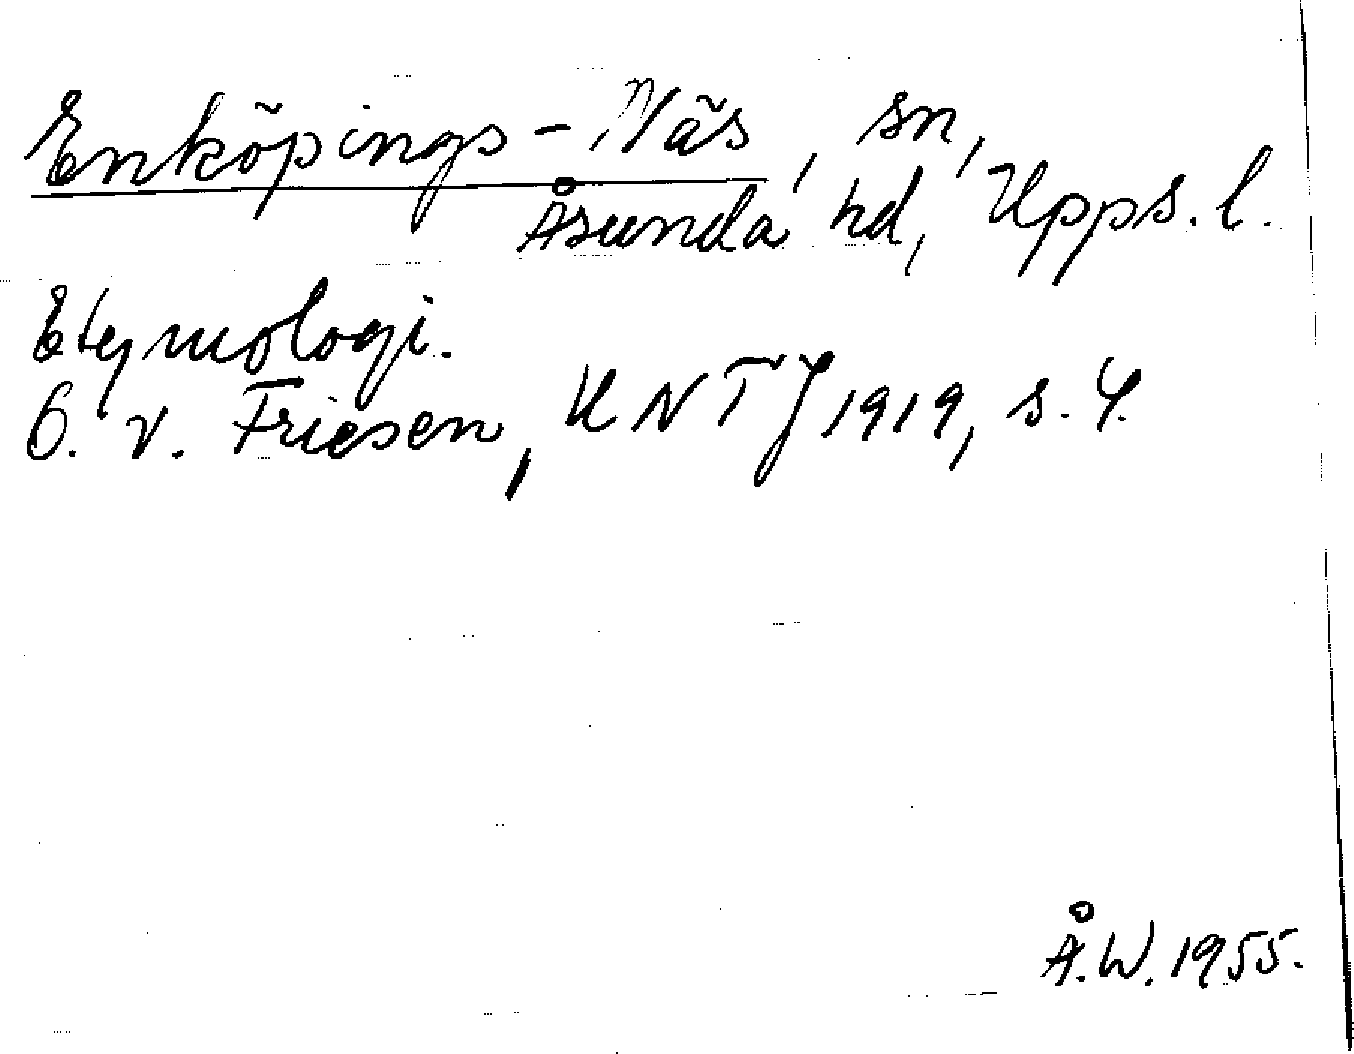 Enköpings-Näs, sn,
Åsunda hd, Upps. l.
Etymologi.
O. v. Friesen, UNTJ 1919, s. 4.
Å. W. 1955.